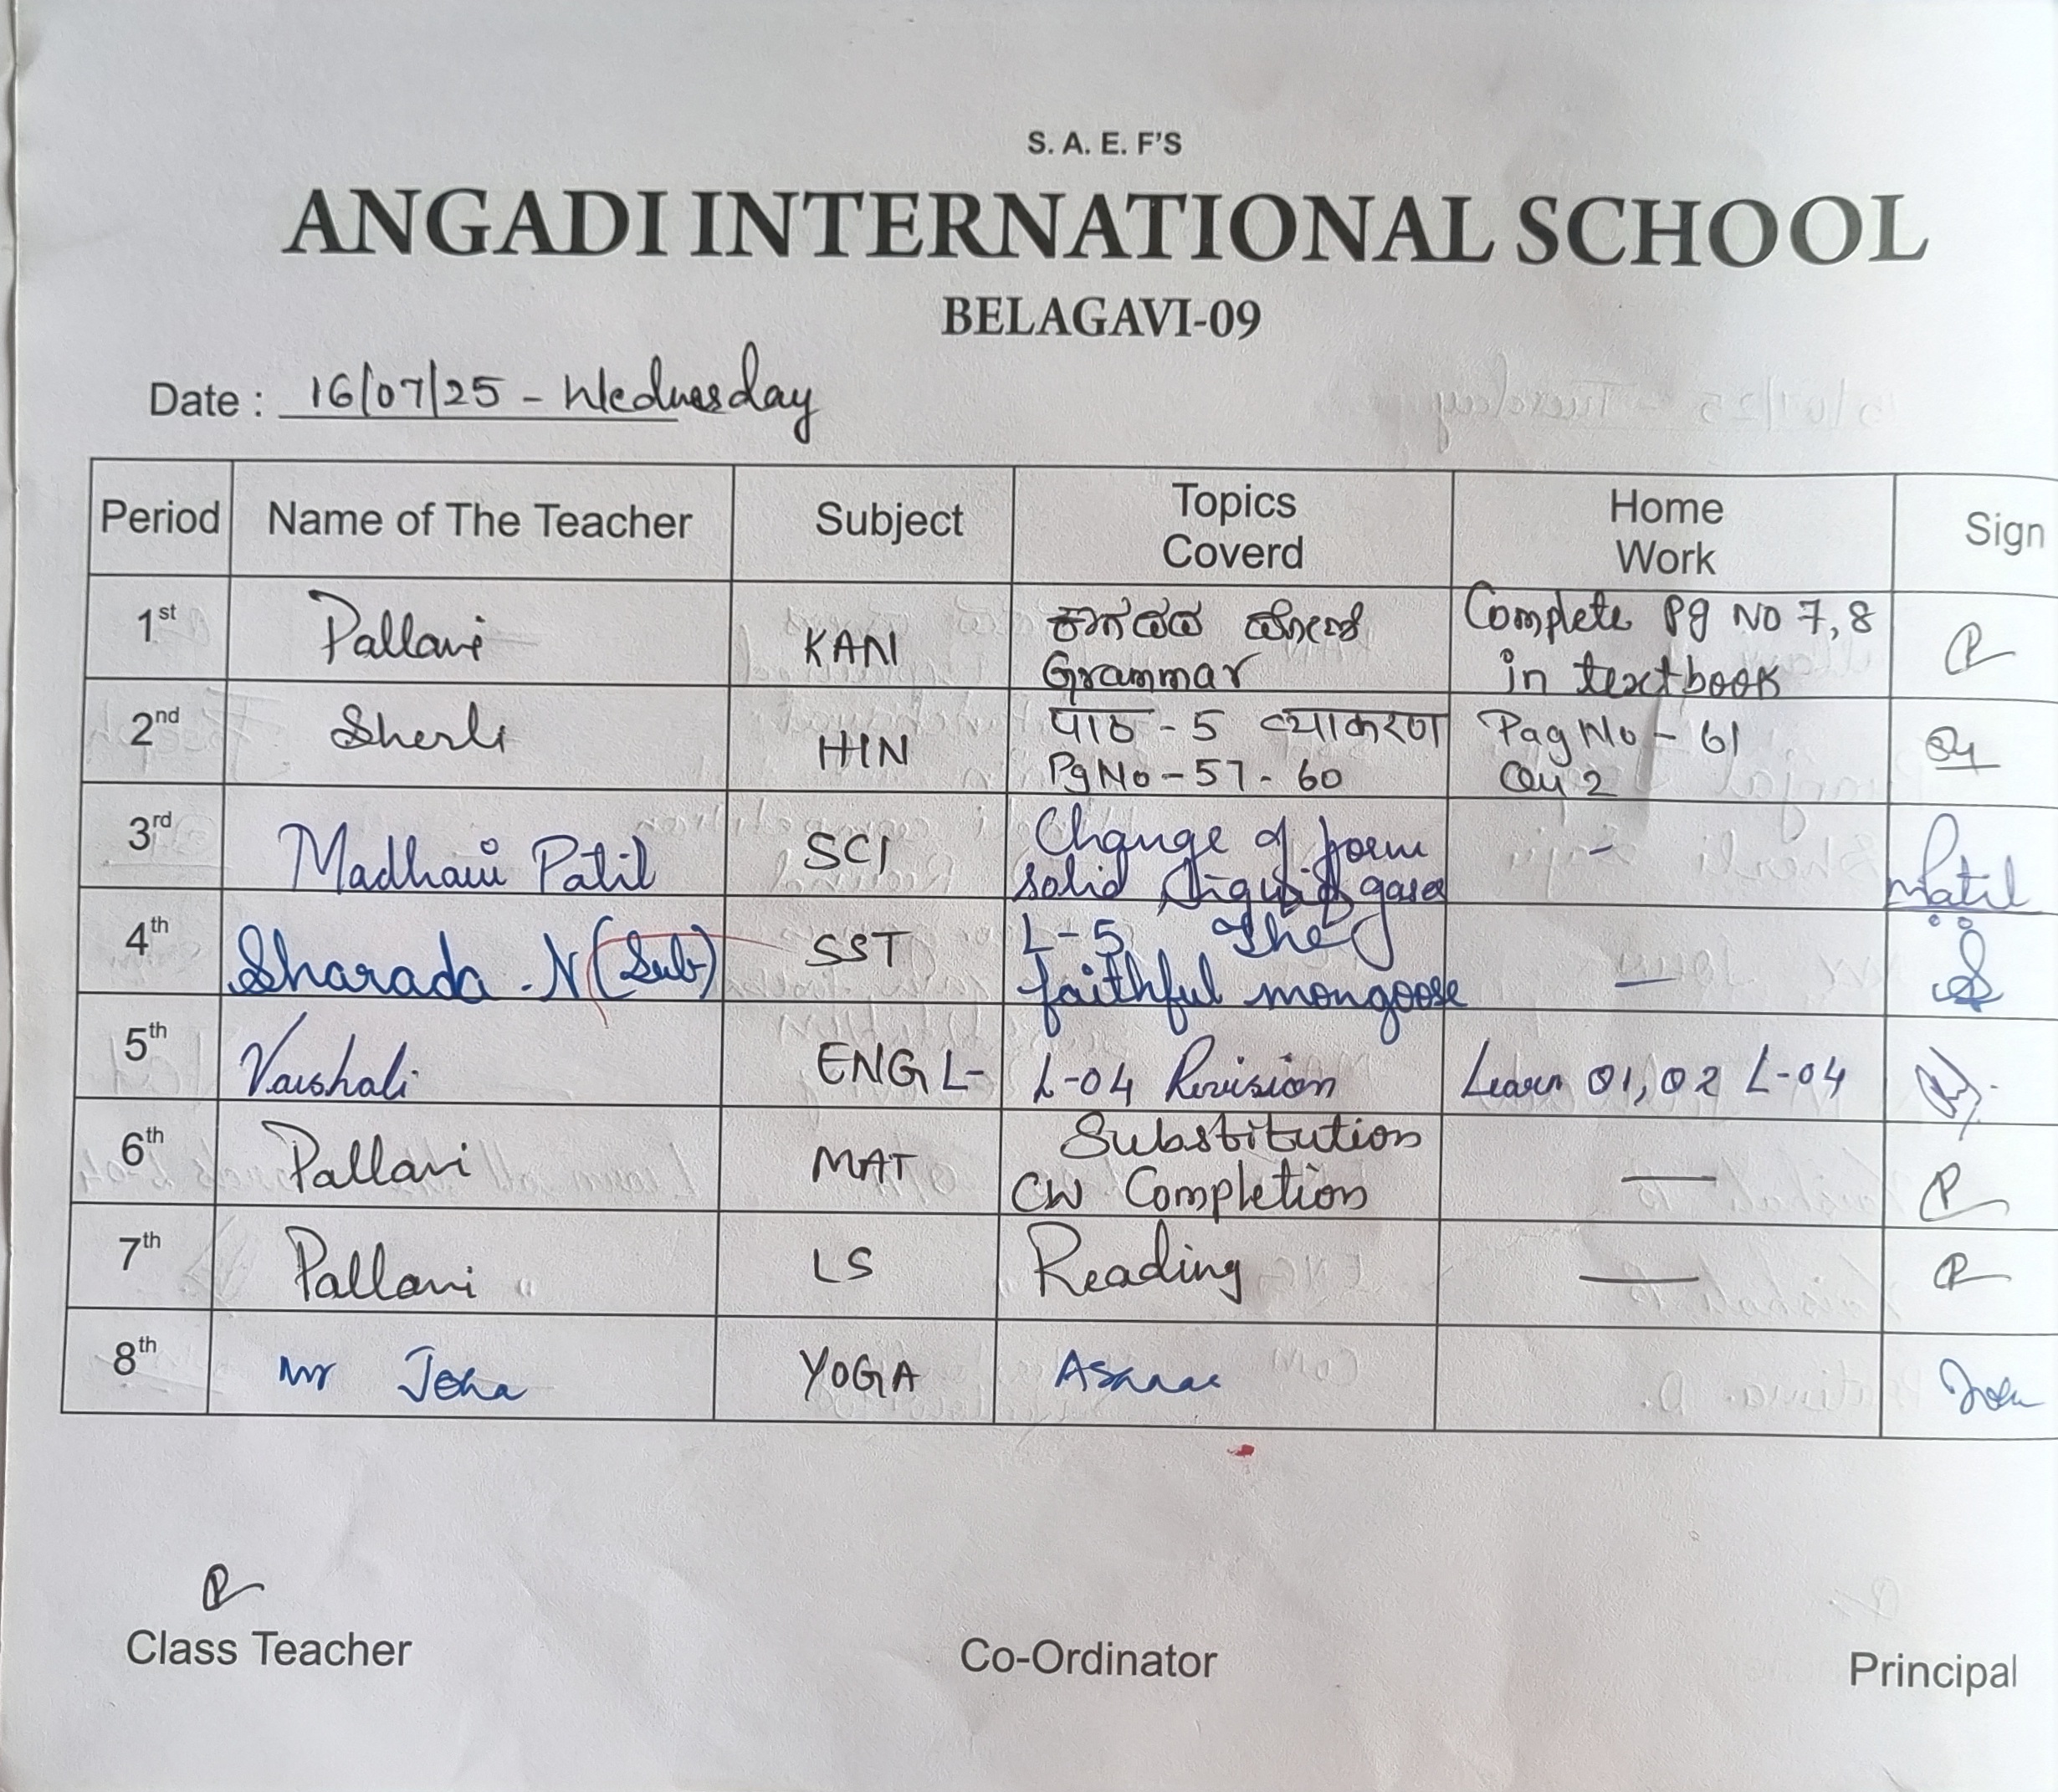 S. A. E. F'S
ANGADI INTERNATIONAL SCHOOL
BELAGAVI-09
Date : 16/07/25 - Wednesday
Period Name of The Teacher Subject Topics Coverd Home Work Sign
1st Pallavi KAN Grammar Complete Pg No 7, 8 in textbook
2nd Sherli HIN पाठ - 5 व्याकरण Pg No - 57 - 60 Pag No - 61 Qu 2
3rd Madhavi Patil SCI Change of form solid liquid gases - Patil
4th Sharada .N (Sub) SST L-5 The faithful mongoose —
5th Vaishali ENG L- L-04 Revision Learn Q1, Q2 L-04
6th Pallavi MAT Substitution CW Completion —
7th Pallavi LS Reading —
8th Mr YOGA
Class Teacher Co-Ordinator Principal